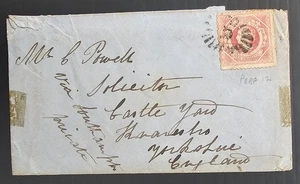 Mr C Powell
Solicitor
Castle Yard
Knaresbro
Yorkshire
England
via Southampton
private
PERF 12